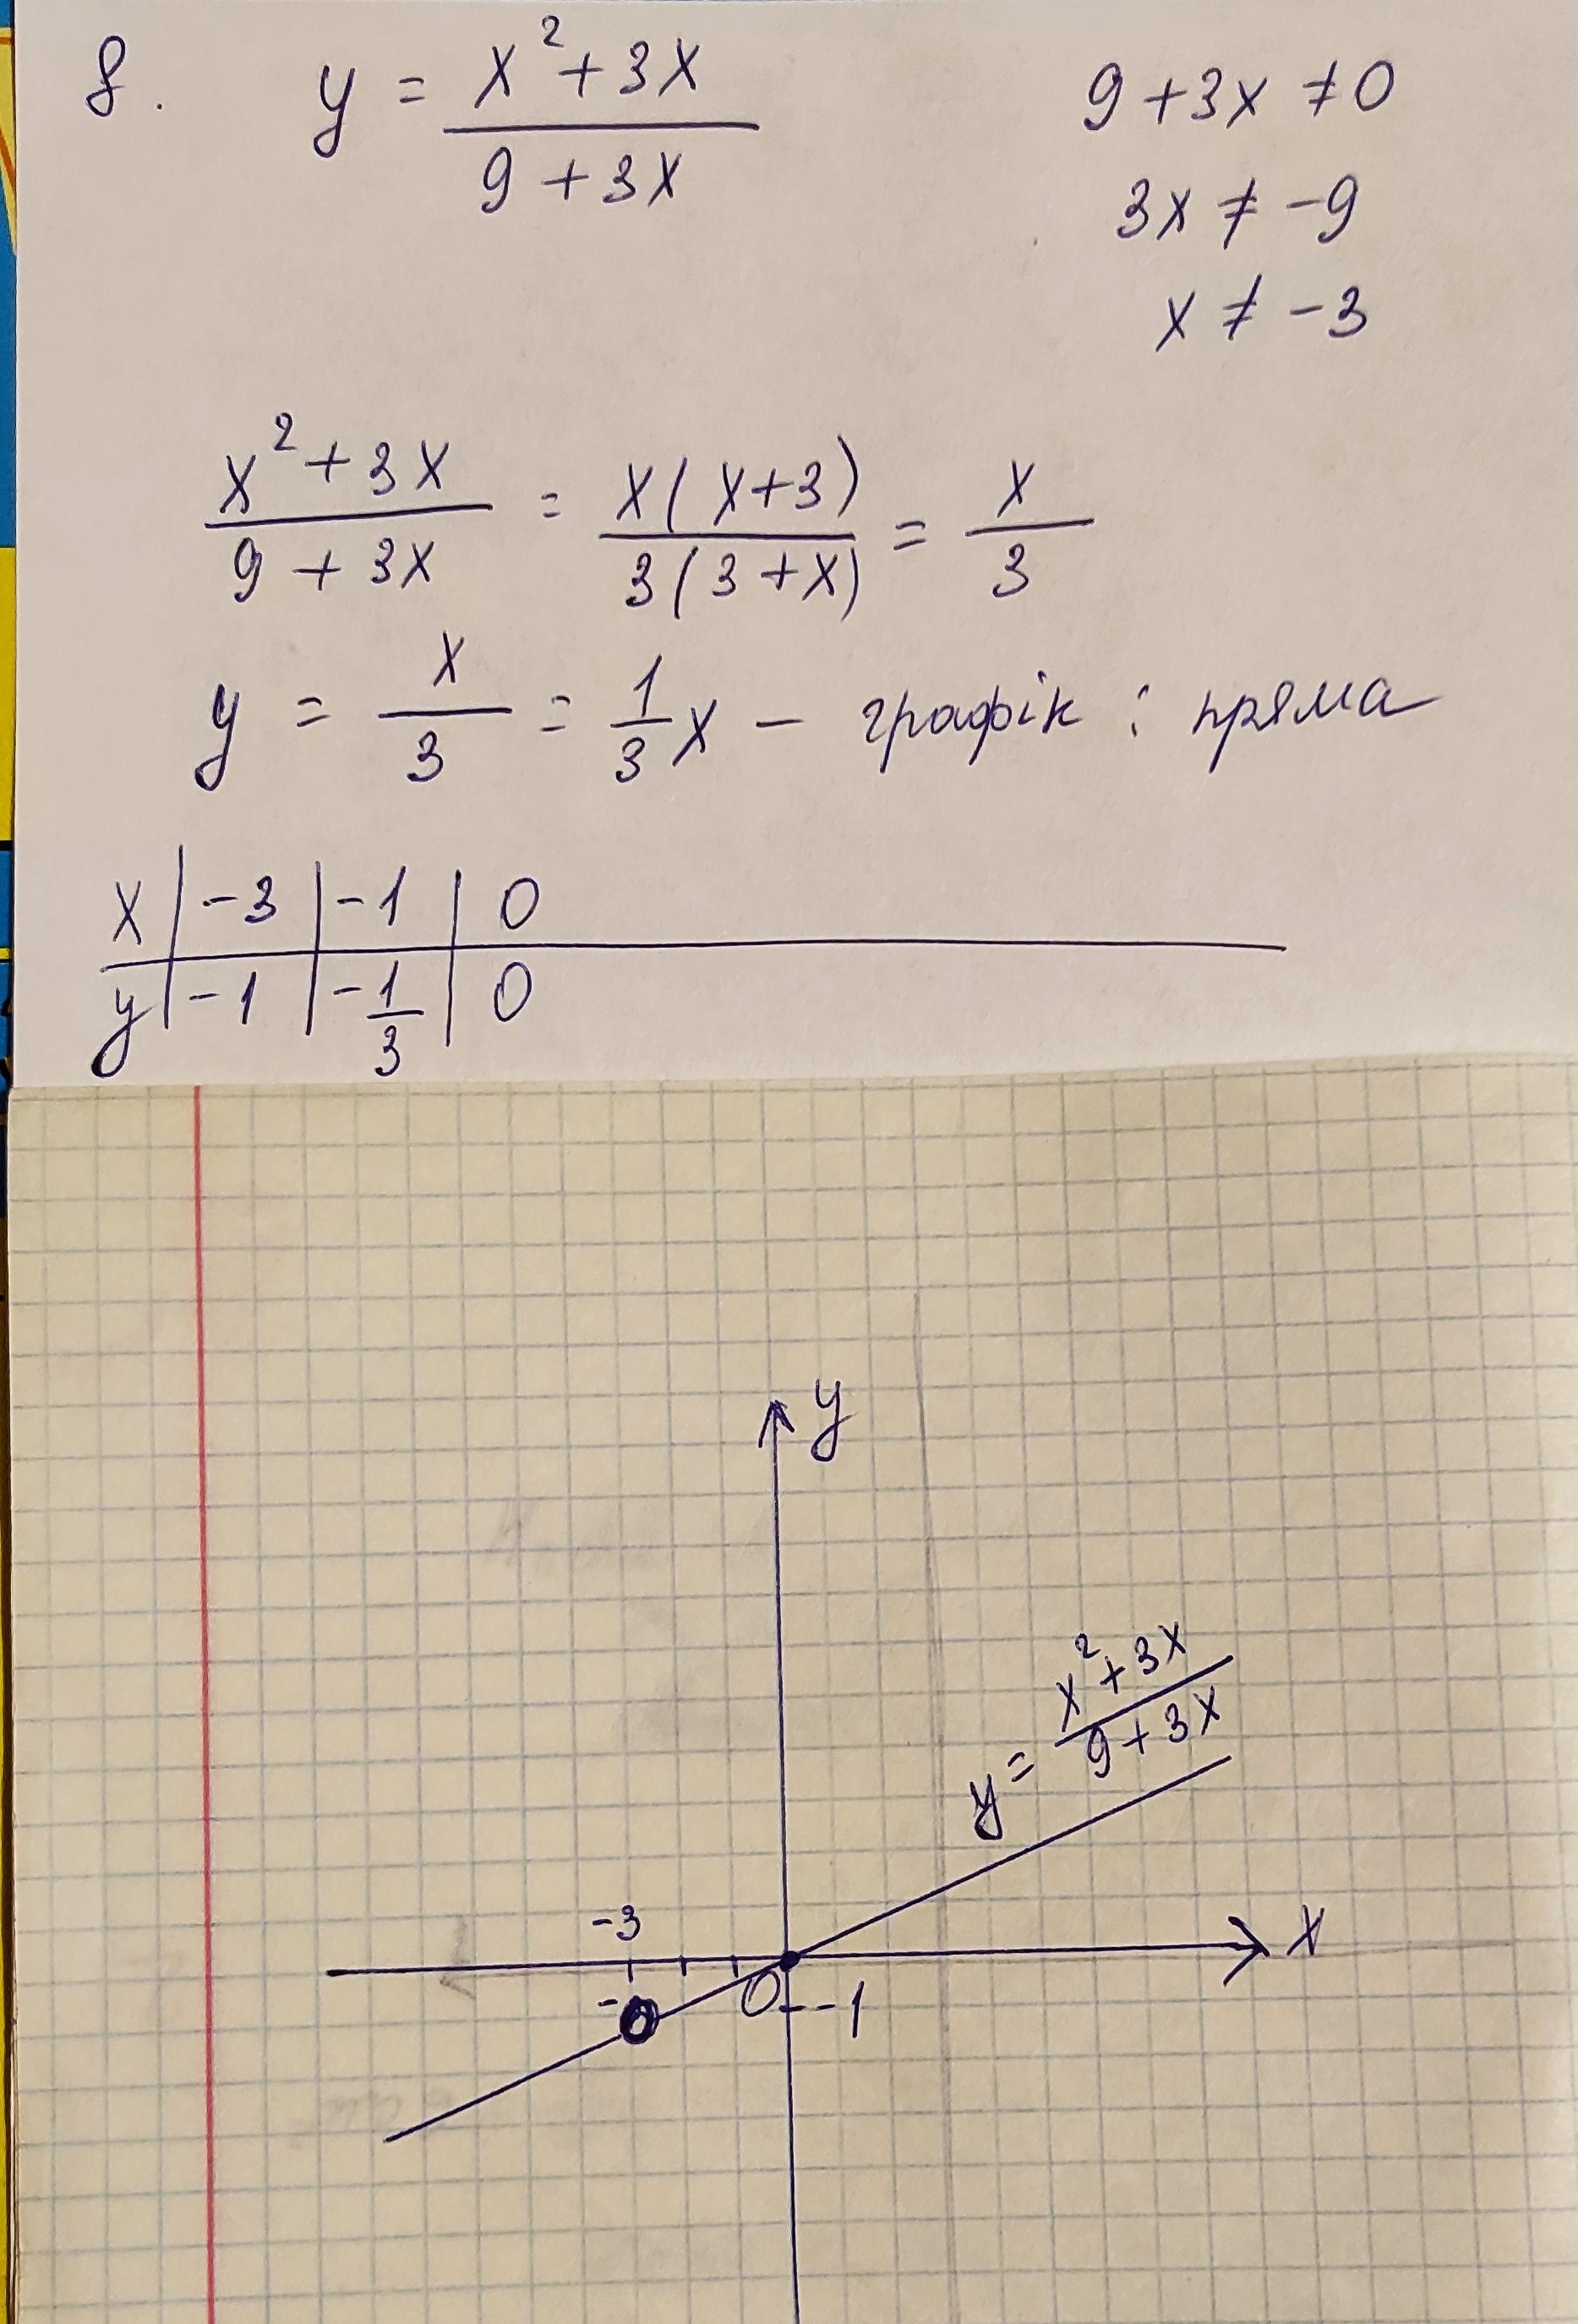 8. y = (x² + 3x)/(9 + 3x)
9 + 3x ≠ 0
3x ≠ -9
x ≠ -3
(x² + 3x)/(9 + 3x) = x(x+3)/3(3+x) = x/3
y = x/3 = 1/3 x – графік : пряма
x | -3 | -1 | 0
y | -1 | -1/3 | 0
y
y = (x² + 3x)/(9 + 3x)
-3
x
0
-1